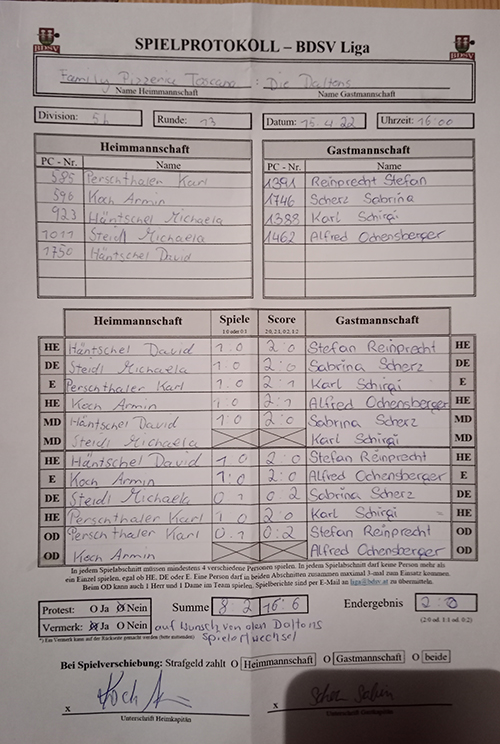 BDSV
SPIELPROTOKOLL – BDSV Liga
BDSV
Family Pizzeria Toscana : Die Daltons
Name Heimmannschaft Name Gastmannschaft
Division: 5b Runde: 13 Datum: 15.4.22 Uhrzeit: 16:00
Heimmannschaft Gastmannschaft
PC - Nr. Name PC - Nr. Name
585 Perschthaler Karl 1391 Reinprecht Stefan
596 Koch Armin 1746 Scherz Sabrina
923 Häntschel Michaela 1388 Karl Schirgi
1011 Steidl Michaela 1462 Alfred Ochensberger
1750 Häntschel David
Heimmannschaft Spiele Score Gastmannschaft
1:0 oder 0:1 2:0, 2:1, 0:2, 1:2
HE Häntschel David 1:0 2:0 Stefan Reinprecht HE
DE Steidl Michaela 1:0 2:0 Sabrina Scherz DE
E Perschthaler Karl 1:0 2:1 Karl Schirgi E
HE Koch Armin 1:0 2:1 Alfred Ochensberger HE
MD Häntschel David 1:0 2:0 Sabrina Scherz MD
MD Steidl Michaela Karl Schirgi MD
HE Häntschel David 1:0 2:0 Stefan Reinprecht HE
E Koch Armin 1:0 2:0 Alfred Ochensberger E
DE Steidl Michaela 0:1 0:2 Sabrina Scherz DE
HE Perschthaler Karl 1:0 2:0 Karl Schirgi HE
OD Perschthaler Karl 0:1 0:2 Stefan Reinprecht OD
OD Koch Armin Alfred Ochensberger OD
In jedem Spielabschnitt müssen mindestens 4 verschiedene Personen spielen. In jedem Spielabschnitt darf keine Person mehr als
ein Einzel spielen, egal ob HE, DE oder E. Eine Person darf in beiden Abschnitten zusammen maximal 3-mal zum Einsatz kommen.
Beim OD kann auch 1 Herr und 1 Dame im Team spielen. Spielberichte sind per E-Mail an liga@bdsv.at zu übermitteln.
Protest: O Ja O Nein Summe 8:2 16:6 Endergebnis 2:0
Vermerk: O Ja O Nein auf Wunsch von den Daltons (2:0 od. 1:1 od. 0:2)
*) Ein Vermerk kann auf der Rückseite gemacht werden (bitte zutreffendes) Spielortwechsel
Bei Spielverschiebung: Strafgeld zahlt O Heimmannschaft O Gastmannschaft O beide
x Koch x
Unterschrift Heimkapitän Unterschrift Gastkapitän